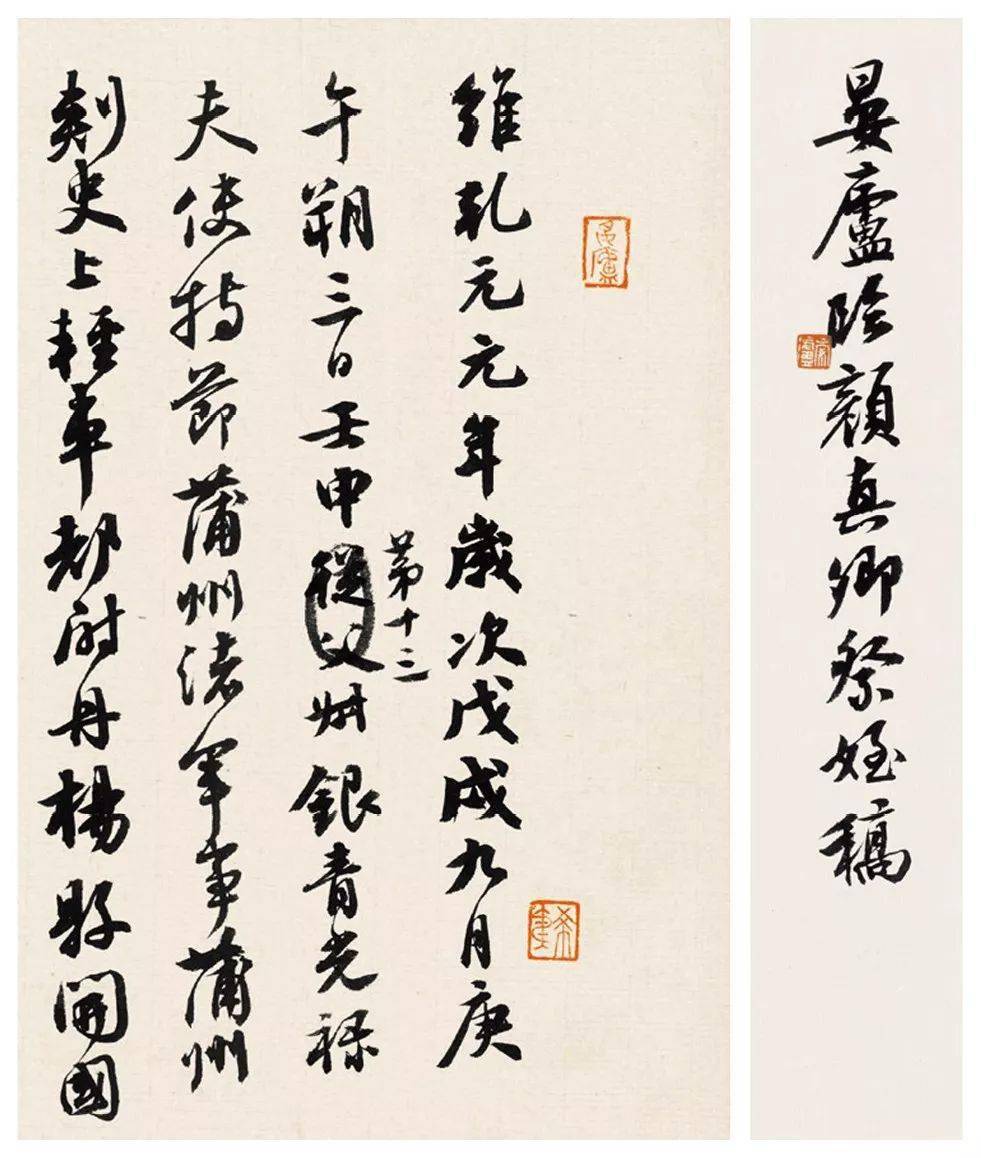 晏廬臨顏真卿祭姪稿
維乾元元年歲次戊戌九月庚
午朔三日壬申從父叔銀青光祿
第十三
夫使持節蒲州諸軍事蒲州
刺史上輕車都尉丹楊縣開國